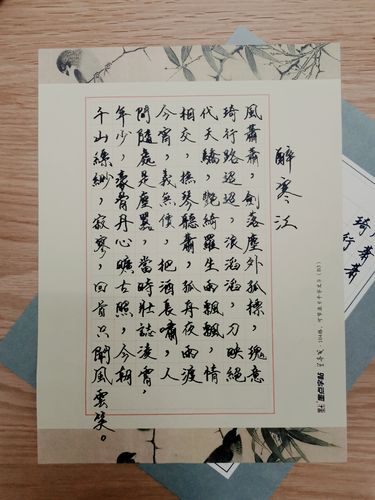 醉寒江
風蕭蕭，劍落塵外孤標，瑰意
琦行路迢迢，浪滔滔，刀映絕
代天驕，艷綺羅生雨飄飄，情
相交，撫琴聽蕭，孤舟夜雨渡
今宵，義無儔，把酒長嘯，人
間隨處是塵囂，當時壯誌凌霄，
年少，豪膂丹心曠古照，今朝
千山縹緲，寂寥，回首只聞風雲笑。
墨点字帖